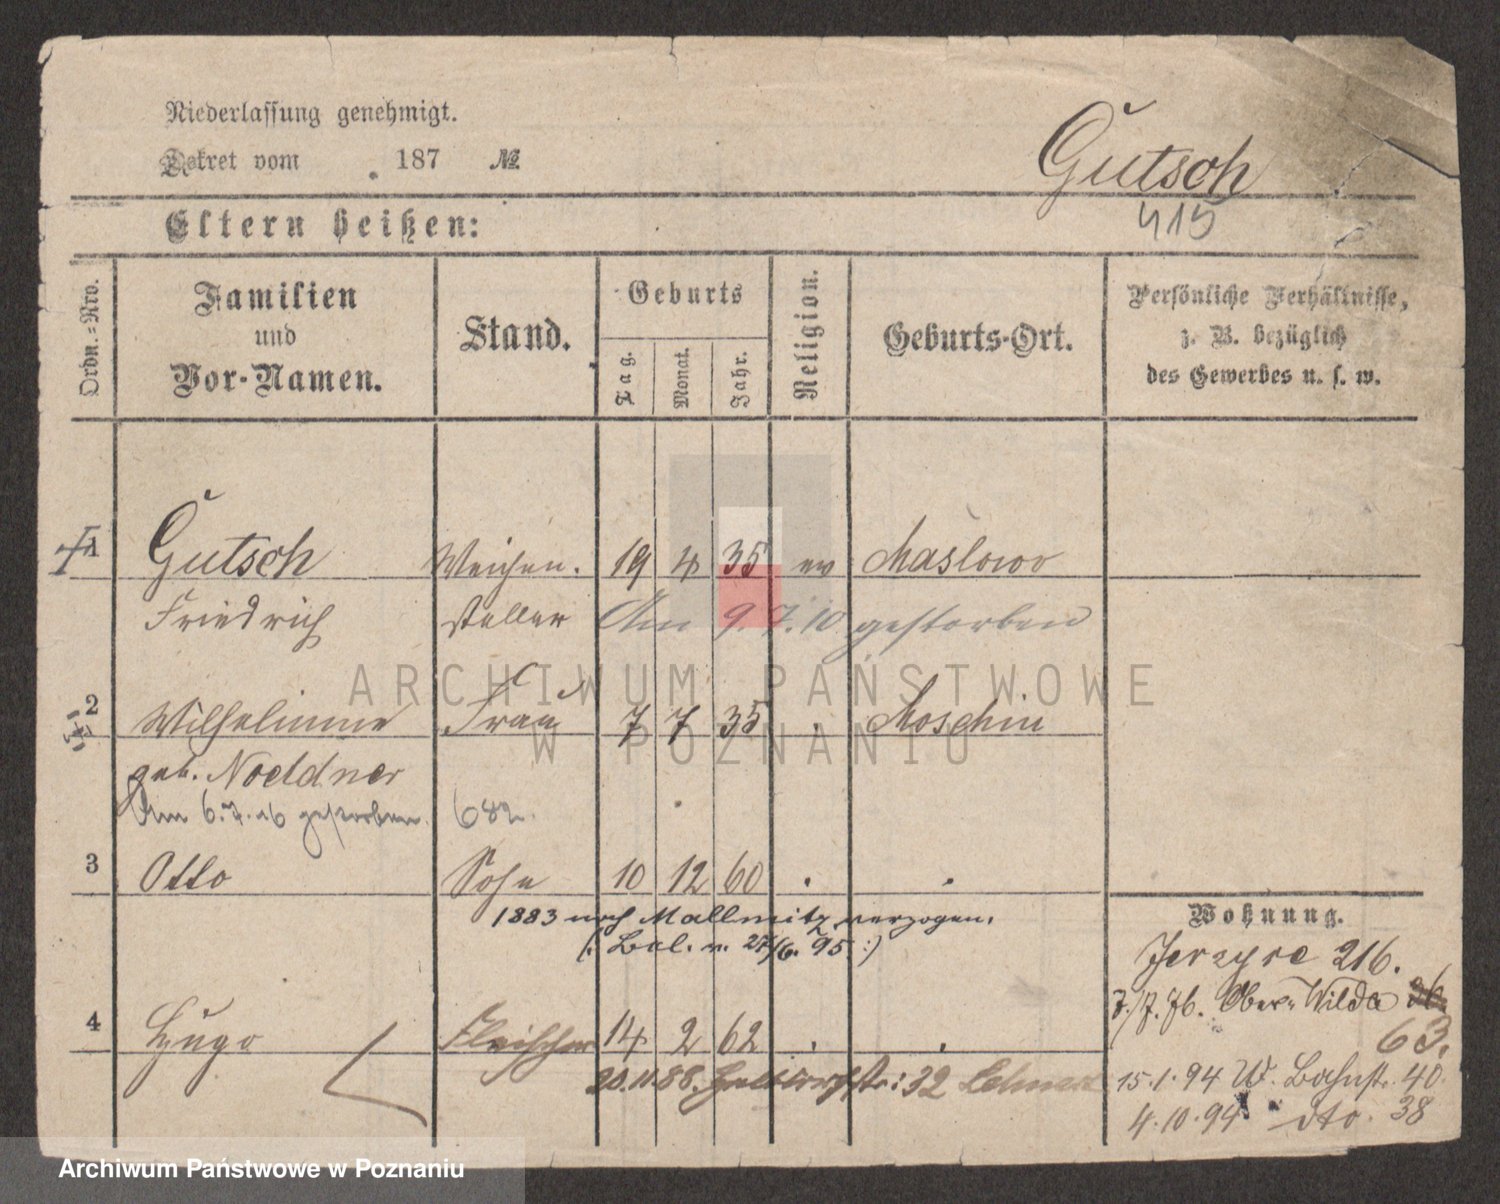 Niederlassung genehmigt.
Dekret vom . 187 №
Gutsch
415
Eltern heißen:
Ordn.=Nro.
Familien
und
Vor-Namen.
Stand.
Geburts
Tag.
Monat.
Jahr.
Religion.
Geburts-Ort.
Persönliche Verhältnisse,
z. B. bezüglich
des Gewerbes u. s. w.
1 Gutsch Weichen. 19 4 35 ev Maslowo
Friedrich steller Am 9.7.10 gestorben
2 Wilhelmine Frau 7 7 35 . Moschin
geb. Noeldner
Am 6.7.16 gestorben. 682.
3 Otto Sohn 10 12 60 . .
1883 nach Mallmitz verzogen.
(: Bal. v. 27/6. 95 :)
Wohnung.
Jerzyce 216.
Ober-Wilda 26.
63.
4 Hugo Fleischer 14 2 62 . .
20.11.88. 32
15.1.94 W. Bahnstr. 40.
4.10.94 dto. 38
ARCHIWUM PAŃSTWOWE
W POZNANIU
Archiwum Państwowe w Poznaniu